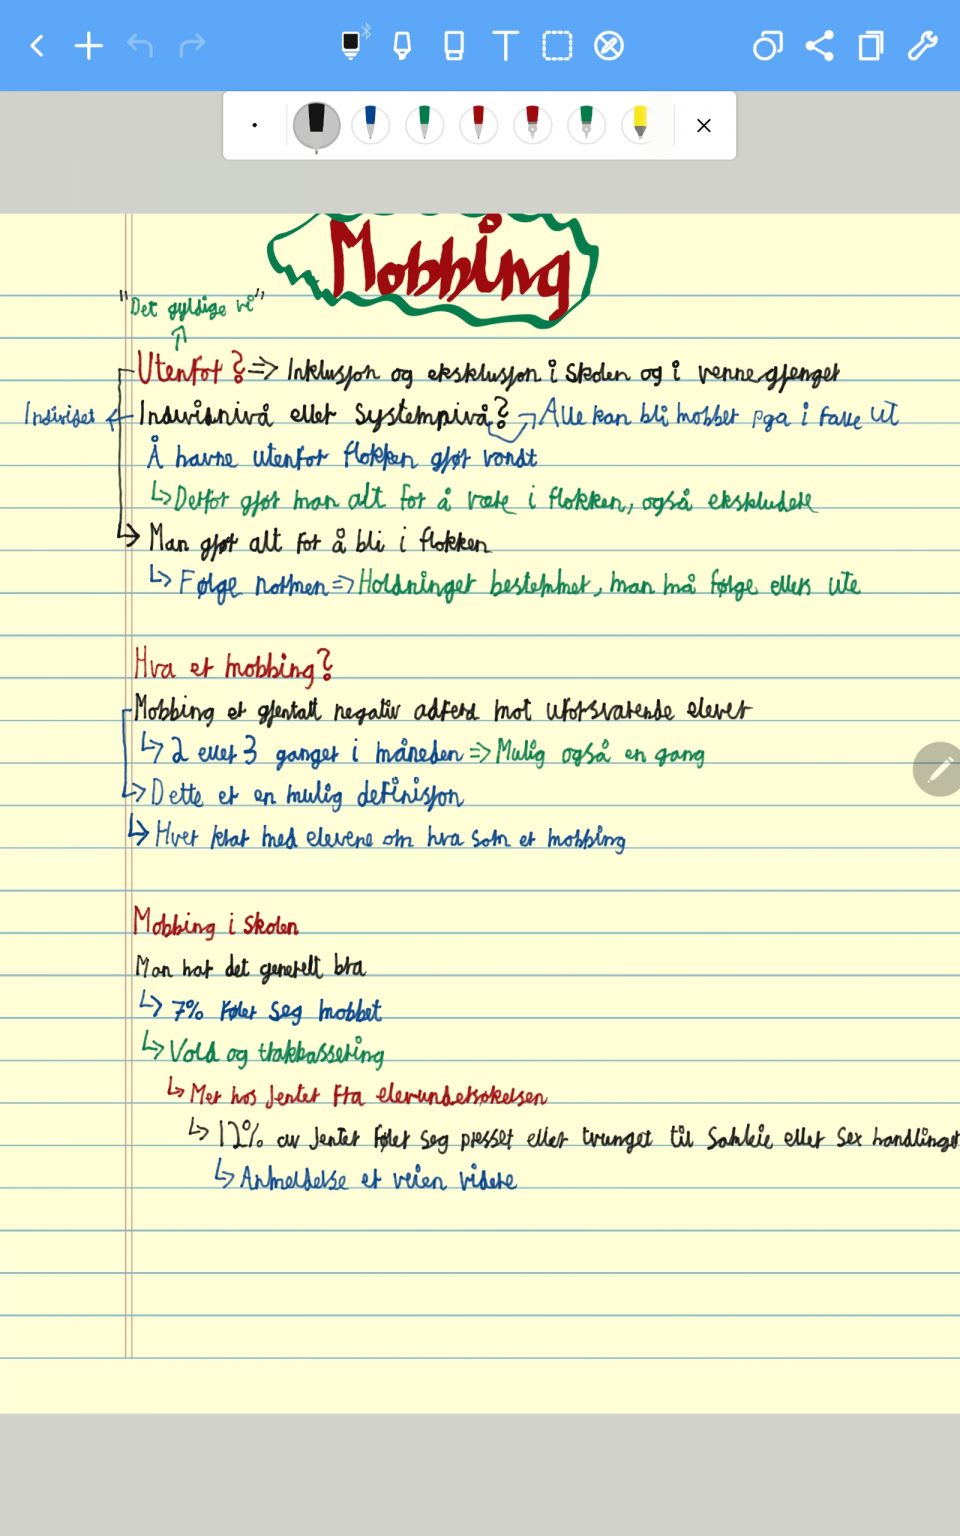 Mobbing
"Det gyldige vi"
Utenfor? => Inklusjon og eksklusjon i skolen og i vennegjenget
Individet <- Individnivå eller systemnivå? -> Alle kan bli mobbet pga i falle ut
Å havne utenfor flokken gjør vondt
↳ Derfor gjør man alt for å være i flokken, også ekskludere
↳ Man gjør alt for å bli i flokken
↳ Følge normen => Holdninger bestemmer, man må følge ellers ute
Hva er mobbing?
Mobbing er gjentatt negativ adferd mot uforsvarende elever
↳ 2 eller 3 ganger i måneden => Mulig også en gang
↳ Dette er en mulig definisjon
↳ Hver prat med elevene om hva som er mobbing
Mobbing i skolen
Man har det generelt bra
↳ 7% føler seg mobbet
↳ Vold og trakassering
↳ Mer hos jenter fra elevundersøkelsen
↳ 12% av jenter føler seg presset eller tvunget til samleie eller sex handlinger
↳ Anmeldelse er veien videre